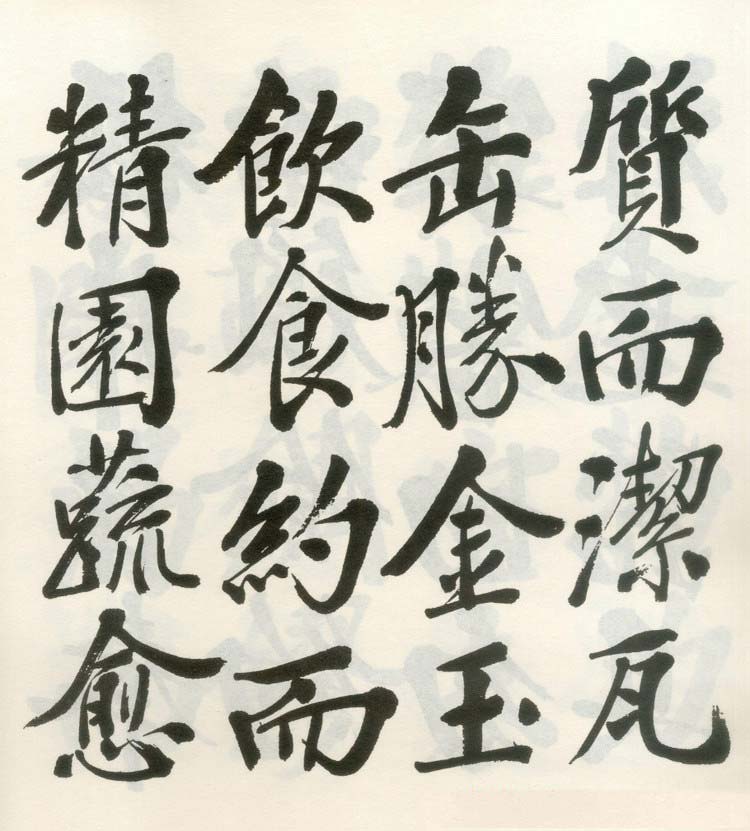 質而潔瓦
缶勝金玉
飲食約而
精園蔬愈